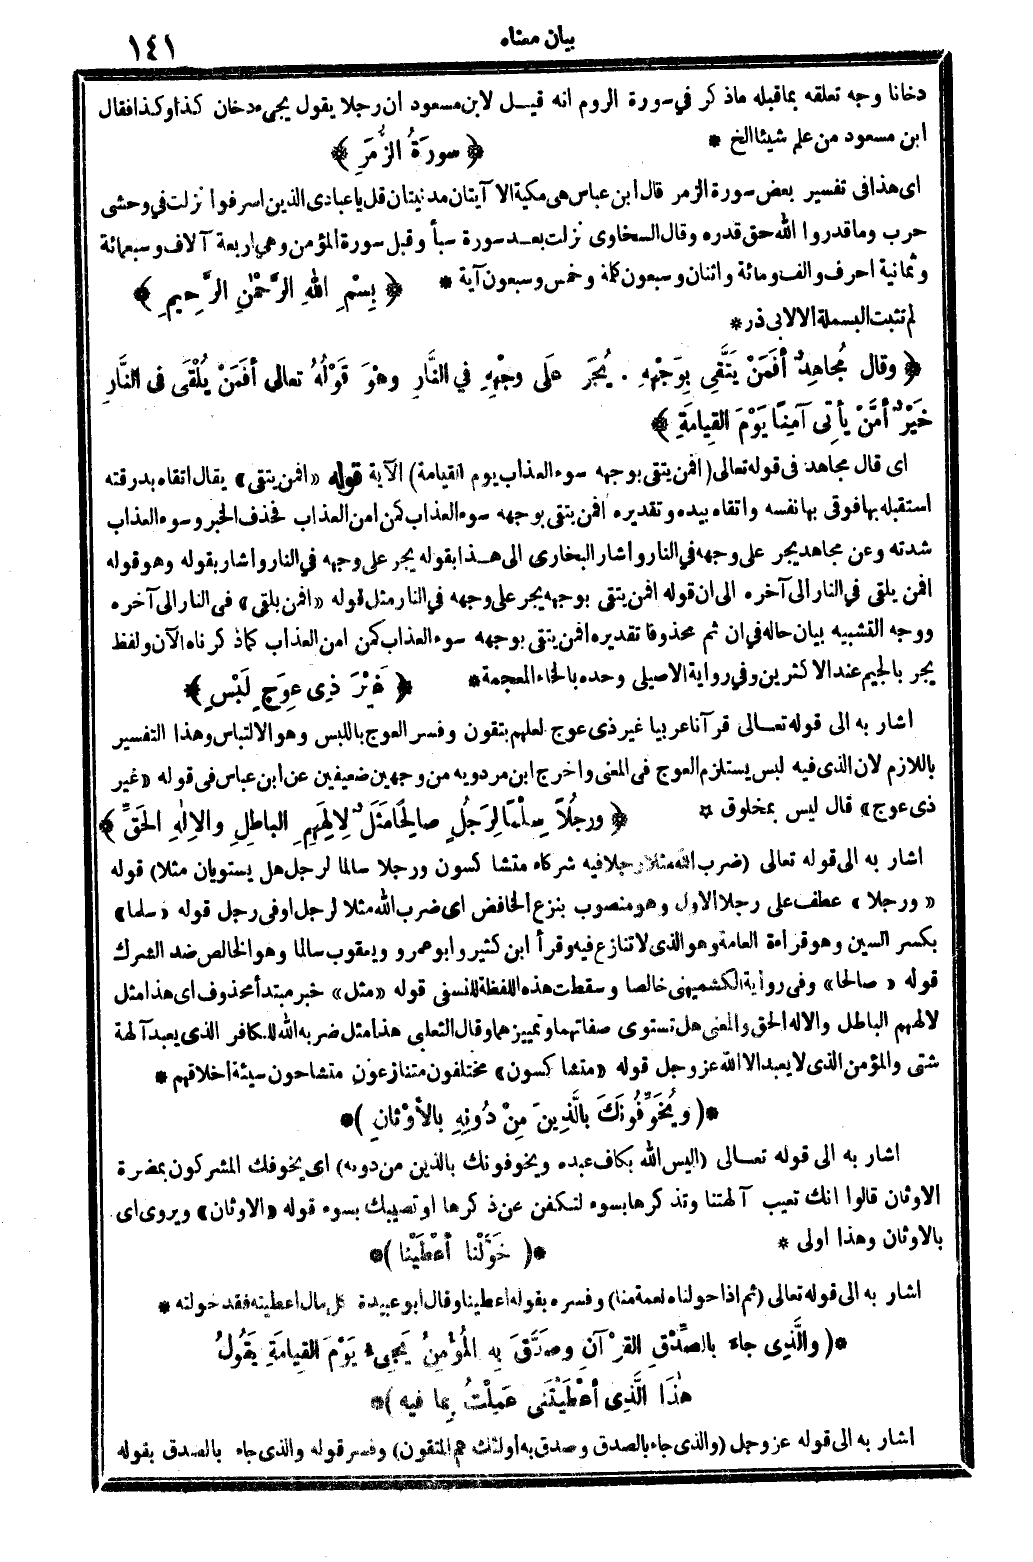 بيان معناه
١٤١
دخانا وجه تعلقه بماقبله ماذكر في سورة الروم انه قيل لابن مسعود ان رجلا يقول يجيء دخان كذا وكذا فقال
ابن مسعود من علم شيئا الخ *
﴿ سورَةُ الزُّمَرِ ﴾
اى هذا فى تفسير بعض سورة الزمر قال ابن عباس هى مكية الا آيتان مدنيتان قل يا عبادى الذين اسرفوا نزلت في وحشى
حرب وما قدروا الله حق قدره وقال السخاوى نزلت بعد سورة سبأ وقبل سورة المؤمن وهي اربعة آلاف وسبعمائة
وثمانية احرف والف ومائة واثنان وسبعون كلمة وخمس وسبعون آية *
﴿ بِسْمِ اللهِ الرَّحْمٰنِ الرَّحِيمِ ﴾
لم تثبت البسملة الا لابى ذر *
﴿ وقال مُجاهِدٌ أفَمَنْ يَتَّقِى بِوَجْهِهِ . يُجَرُّ عَلَى وجْهِهِ في النَّارِ وهْوَ قَوْلُهُ تعالى أفَمَنْ يُلْقَى فى النَّارِ
خَيْرٌ أمَّنْ يأتى آمِنًا يَوْمَ القِيامَةِ ﴾
اى قال مجاهد فى قوله تعالى (افمن يتقى بوجهه سوء العذاب يوم القيامة) الآية قوله «افمن يتقى» يقال اتقاه بدرقته
استقبله بها فوقى بها نفسه واتقاه بيده وتقديره افمن يتقى بوجهه سوء العذاب كمن امن العذاب فحذف الخبر وسوء العذاب
شدته وعن مجاهد يجر على وجهه في النار واشار البخارى الى هذا بقوله يجر على وجهه في النار واشار بقوله وهو قوله
افمن يلقى في النار الى آخره الى ان قوله افمن يتقى بوجهه يجر على وجهه في النار مثل قوله «افمن يلقى» فى النار الى آخره
ووجه التشبيه بيان حاله في ان ثم محذوفا تقديره افمن يتقى بوجهه سوء العذاب كمن امن العذاب كما ذكرناه الآن ولفظ
يجر بالجيم عند الاكثرين وفي رواية الاصيلى وحده بالخاء المعجمة *
﴿ غَيْرَ ذِى عِوَجٍ لَبْسٍ ﴾
اشار به الى قوله تعالى قرآنا عربيا غير ذى عوج لعلهم يتقون وفسر العوج باللبس وهو الالتباس وهذا التفسير
باللازم لان الذى فيه لبس يستلزم العوج فى المعنى واخرج ابن مردويه من وجهين ضعيفين عن ابن عباس فى قوله «غير
ذى عوج» قال ليس بمخلوق *
﴿ ورجُلاً سِلْمًا لِرَجُلٍ صالِحًا مَثَلٌ لِآلِهَتِهِمِ الباطِلِ والاِلٰهِ الحَقِّ ﴾
اشار به الى قوله تعالى (ضرب الله مثلا رجلا فيه شركاء متشاكسون ورجلا سالما لرجل هل يستويان مثلا) قوله
«ورجلا» عطف على رجلا الاول وهو منصوب بنزع الخافض اى ضرب الله مثلا لرجل او فى رجل قوله «سلما»
بكسر السين وهو قراءة العامة وهو الذى لا تنازع فيه وقرأ ابن كثير وابو عمرو ويعقوب سالما وهو الخالص ضد الشرك
قوله «صالحا» وفى رواية الكشميهنى خالصا وسقطت هذه اللفظة للنسفى قوله «مثل» خبر مبتدأ محذوف اى هذا مثل
لالهتهم الباطل والاله الحق والمعنى هل تستوى صفاتهما وتمييزهما وقال الثعلبى هذا مثل ضربه الله للكافر الذى يعبد آلهة
شتى والمؤمن الذى لا يعبد الا الله عز وجل قوله «متشاكسون» مختلفون متنازعون متشاحون سيئة اخلاقهم *
*( ويُخَوِّفُونَكَ بالَّذِينَ مِنْ دُونِهِ بالأوْثانِ )*
اشار به الى قوله تعالى (اليس الله بكاف عبده ويخوفونك بالذين من دونه) اى يخوفك المشركون بمضرة
الاوثان قالوا انك تعيب آلهتنا وتذكرها بسوء لتكفن عن ذكرها او تصيبك بسوء قوله «الاوثان» ويروى اى
بالاوثان وهذا اولى *
*( خَوَّلْنا أعْطَيْنا )*
اشار به الى قوله تعالى (ثم اذا خولناه نعمة منا) وفسره بقوله اعطينا وقال ابو عبيدة كل مال اعطيته فقد خولته *
*( والَّذِى جاءَ بالصِّدْقِ القرْآنِ وصَدَّقَ بِهِ المُؤْمِنُ يَجِىءُ يَوْمَ القِيامَةِ يَقُولُ
هٰذَا الَّذِى أعْطَيْتَنِى عَمِلْتُ بِما فيه )*
اشار به الى قوله عز وجل (والذى جاء بالصدق وصدق به اولئك هم المتقون) وفسر قوله والذى جاء بالصدق بقوله